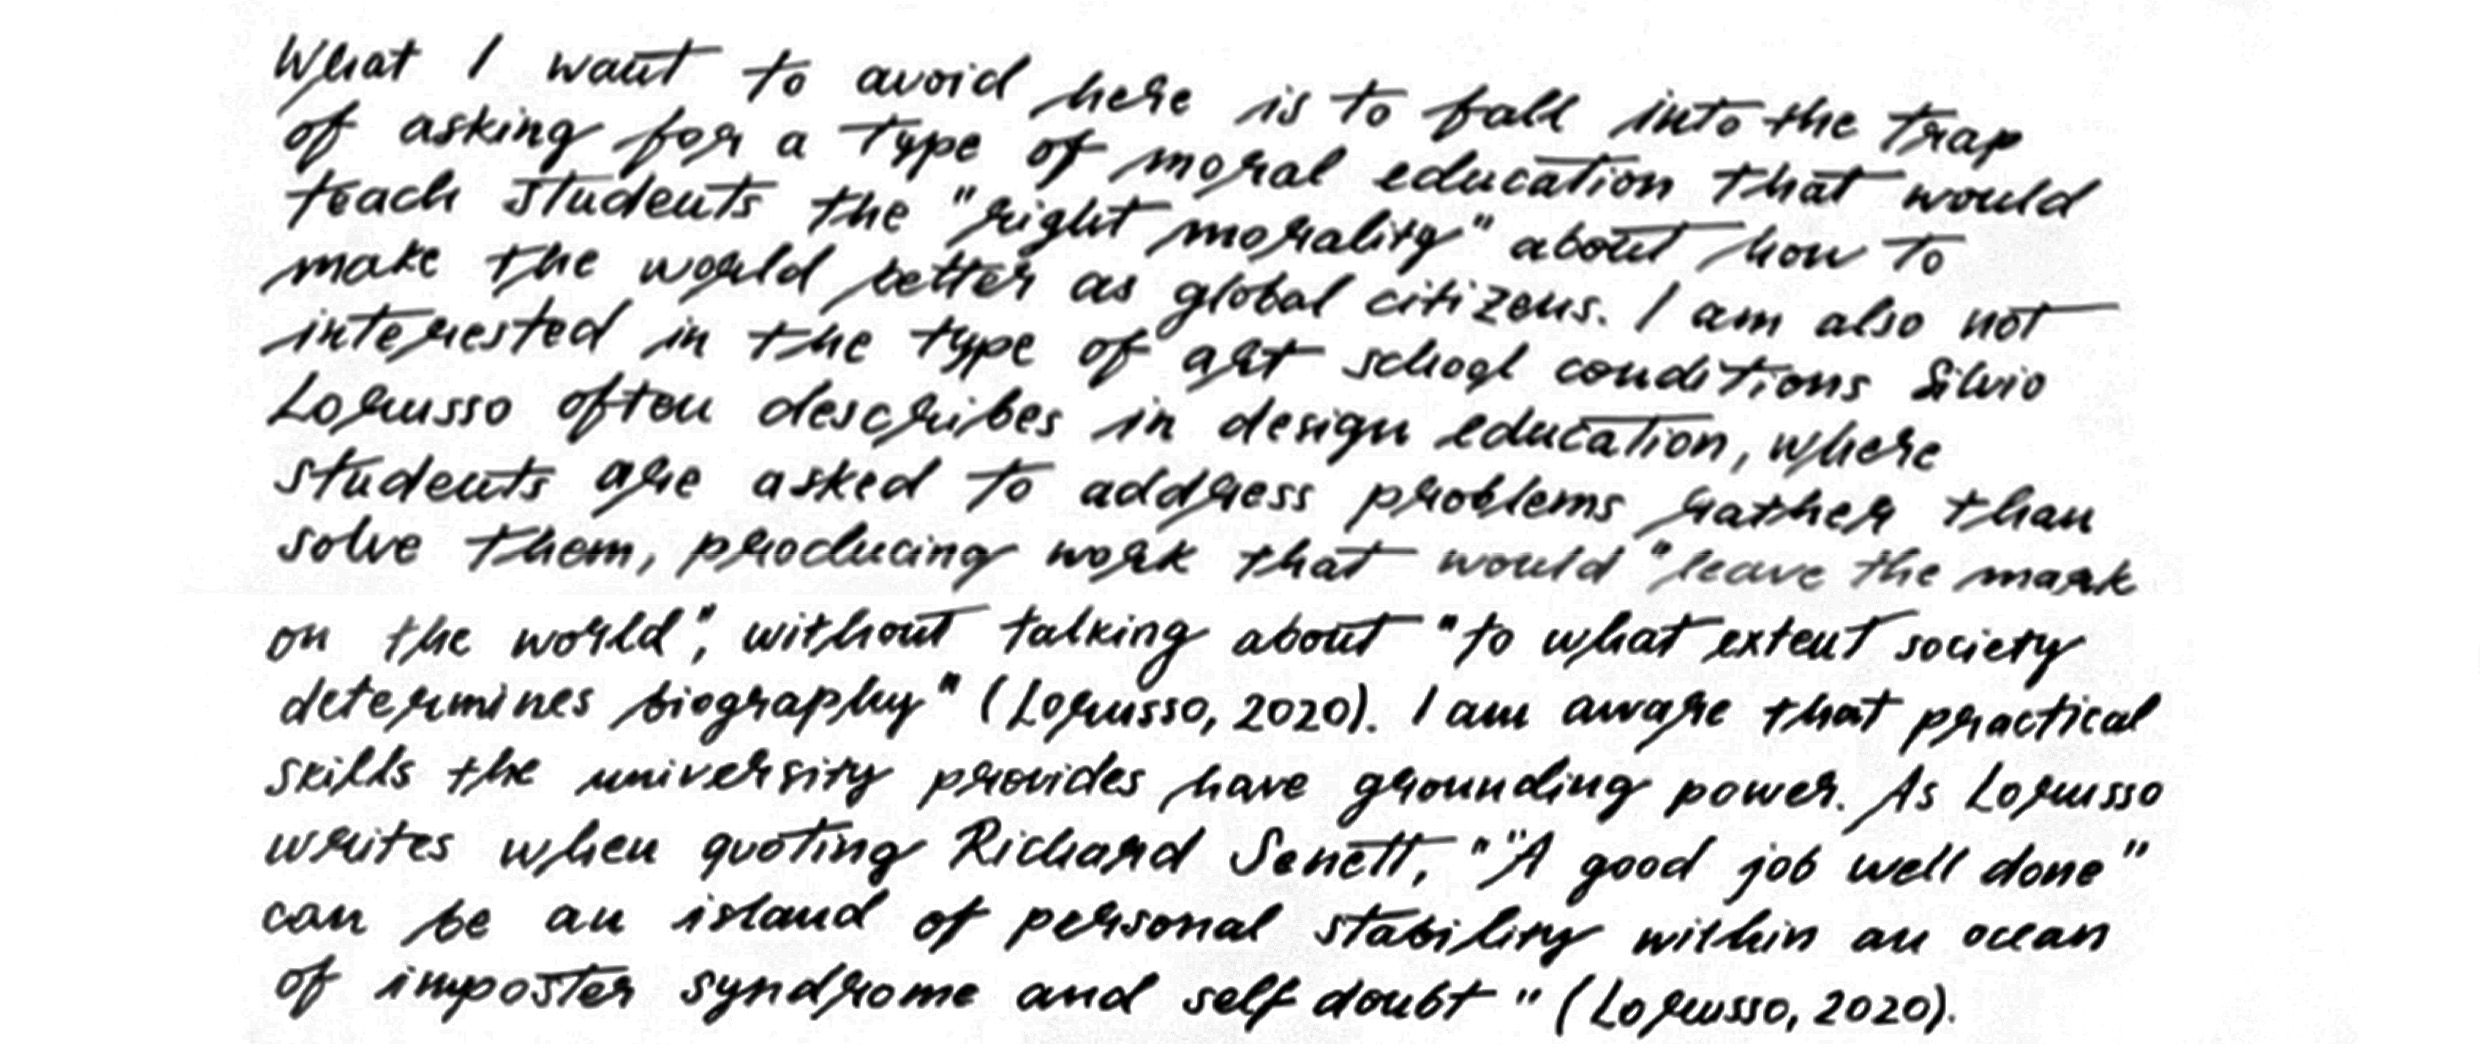 What I want to avoid here is to fall into the trap
of asking for a type of moral education that would
teach students the "right morality" about how to
make the world better as global citizens. I am also not
interested in the type of art school conditions Silvio
Lorusso often describes in design education, where
students are asked to address problems rather than
solve them, producing work that would "leave the mark
on the world", without talking about "to what extent society
determines biography" (Lorusso, 2020). I am aware that practical
skills the university provides have grounding power. As Lorusso
writes when quoting Richard Senett, ""A good job well done"
can be an island of personal stability within an ocean
of imposter syndrome and self doubt" (Lorusso, 2020).